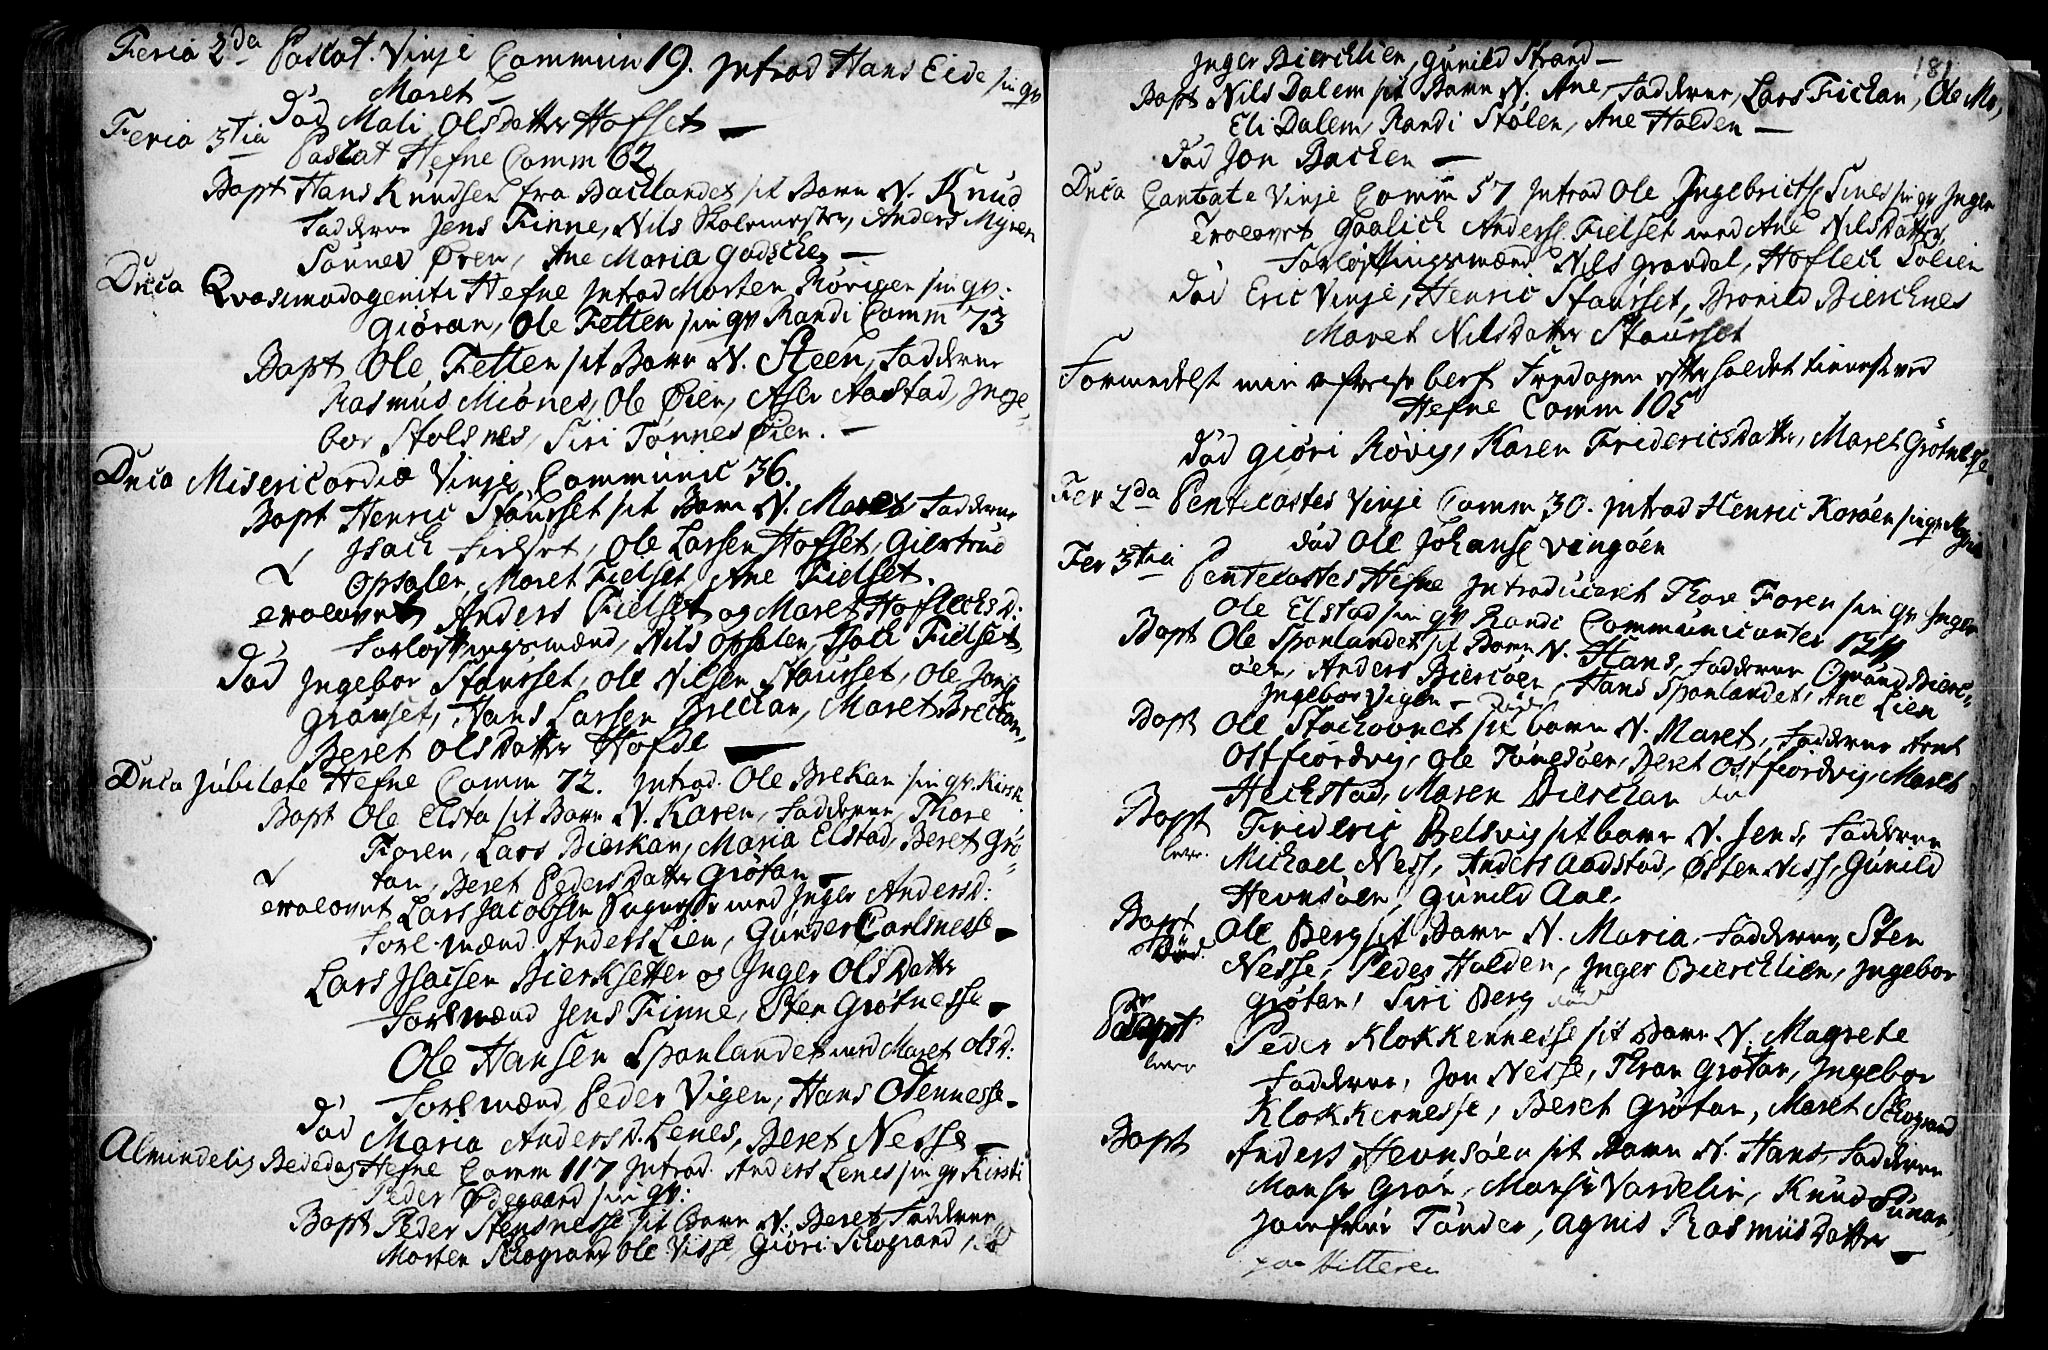 Feria 2da Pascat. Vinje Commun 19. Introd Hans Eide sin qv
Maret –
Død Mali Olsdatter Hofset –
Feria 3tia Pascat Hefne Comm 62
Bapt Hans Knudsen fra Backlandet sit Barn N. Knud
Fadderne Jens Finne, Nils Skolemester, Anders Myren
Tønnes Øren, Ane Maria Godschen –
Dnca Qvasimodogeniti Hefne Introd Morten Rørigen sin qv:
Giøran, Ole Fetten sin qv Randi Comm 73
Bapt Ole Fetten sit Barn N. Steen, Fadderne
Rasmus Miønes, Ole Øien, Aslo Aastad, Inge-
bor Stolsnes, Siri Tønnes Øien. –
Dnca Misericordiæ Vinje Communic 36.
Bapt Henric Staursset sit Barn N. Maret Fadderne
Isach Fielset, Ole Larsen Hofset, Giertrud
Opsalen, Maret Fielset, Ane Fielset.
trolovet Anders Fielset og Maret Hoflechsd:
Forlofningsmænd, Nils Opsalen, Isach Fielset,
Død Ingebor Staursset, Ole Nilsen Staursset, Ole Jonse
Grønset, Hans Larsen Breckan, Maret Breckan,
Beret Olsdatter Hofde –
Dnca Jubilate Hefne Comm 72. Introd. Ole Brekan sin qv. Kirst.
Bapt Ole Elsta sit Barn N. Karen, Fadderne, Thore
Foren, Lars Bierkan, Maria Elstad, Beret Grø-
tan, Beret Pedersdatter Grøtan –
trolovet Lars Jacobsen med Inger Andersd:
Forl. mænd Anders Lien, Gunder Carlsnesse –
Lars Isacsen Bierksetter og Inger Olsdatter
Forlmænd Jens Finne, Sten Grøtnesse –
Ole Hansen Sponlandet med Maret Olsd:
Forlmænd Peder Vigen, Hans Odennesse –
Død Maria Andersd. Lenes, Beret Nesse –
Almindelig Bededag Hefne Comm 117 Introd. Anders Lenes sin qv Kirsti
Peder Ødegaard sin qv:
Bapt Peder Stensnesse sit Barn N. Beret Fadderne
Morten Skogrand, Ole Nisse, Giøri Skogrand,
181
Inger Bierchlien, Gunild Strand –
Bapt Nils Dalem sit Barn N. Ane, Fadderne, Lars Fichan, Ole Mo,
Eli Dalem, Randi Stølen, Ane Halden –
Død Jon Backen –
Dnca Cantate Vinje Comm 57 Introd Ole Ingebrictse sin qv Inger
Trolovet Gaalich Anderss Fielset med Ane Nilsdatter,
Forlofningsmænd Nils Grøndal, Hoflech Solien
Død Eric Vinje, Henric Staursset, Bronild Bierchnes
Maret Nilsdatter Staursset
Formedelst min Fredagen efter holdet tieneste ved
Hefne Comm 105
Død Giøri Røvig, Karen Fridericsdatter, Maret Grøtnesse
Fer 2da Penticostes Vinje Comm 30. Introd Henric Korsøen sin qv
Død Ole Johanse Vingøen
Fer 3tia Pentecostes Hefne Introduceret Thore Foren sin qv Inger
Ole Elstad sin qv Randi Communicantes 124
Bapt Ole Sponlandet sit Barn N. Hans, Fadderne Omund Bierc-
øen, Anders Biercøen, Hans Sponlandet, Ane Lien
Ingebor Vigen –
Bapt Ole Stachovnet sit barn N. Maret, Fadderne Arnt
Ostfiordvig, Ole Tønesøen, Beret Ostfiordvig, Maret
Heckstad, Maren Bierckan
Bapt Frideric Belsvig sit barn N. Jens Fadderne
lever. Michael Ness, Anders Aastad, Østen Ness, Gunild
Hevnsøen, Gunild Aae.
Bapt Ole Berg sit Barn N. Maria, Fadderne, Sten
død. Nesse, Peder Halden, Inger Bierchlien, Ingebor
Grøtan, Siri Berg
Bapt Peder Klokkernesse sit Barn N. Magrete
lever Fadderne, Jon Nesse, Thron Grøtan, Ingebor
Klokkernesse, Beret Grøtan, Maret Skogrand
Bapt Anders Hevnsøen sit Barn N. Hans, Fadderne
Monsr Grøn, Monsr Vardelin, Knud
Jomfrue Tønder, Agnis Rasmusdatter –
paa Hitteren